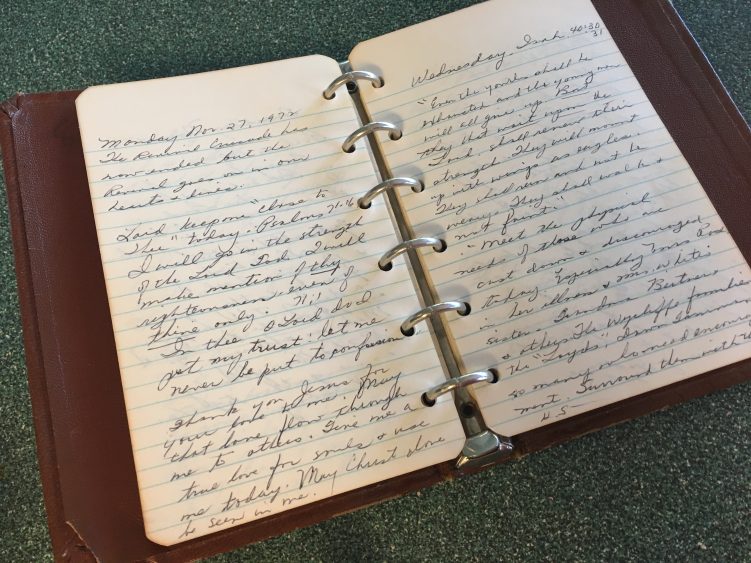 Monday Nov. 27, 1972
The Revival Crusade has
now ended but the
Revival goes on in our
hearts & lives.
Lord keep me "close to
Thee" today - Psalms 71:16
I will go in the strength
of the Lord God. I will
make mention of thy
righteousness even of
thine only. 71:1
In thee O Lord do I
put my trust: let me
never be put to confusion
Thank you Jesus for
your love to me. May
that love flow through
me to others. Give me a
true love for souls & use
me today. May Christ alone
be seen in me.
Wednesday Isah. 40:30
31
"Even the youths shall be
exhausted and the young men
will all give up. But
they that wait upon the
Lord, shall renew their
strength. They will mount
up with wings as eagles.
They shall run and not be
weary. They shall walk &
not faint."
"Meet the physical
needs of those who are
cast down & discouraged
today. Especially Mrs
in her illness & Mrs. White
sister.
& others. The Wycliffe families
the
so many who need encourage
ment. Surround them with